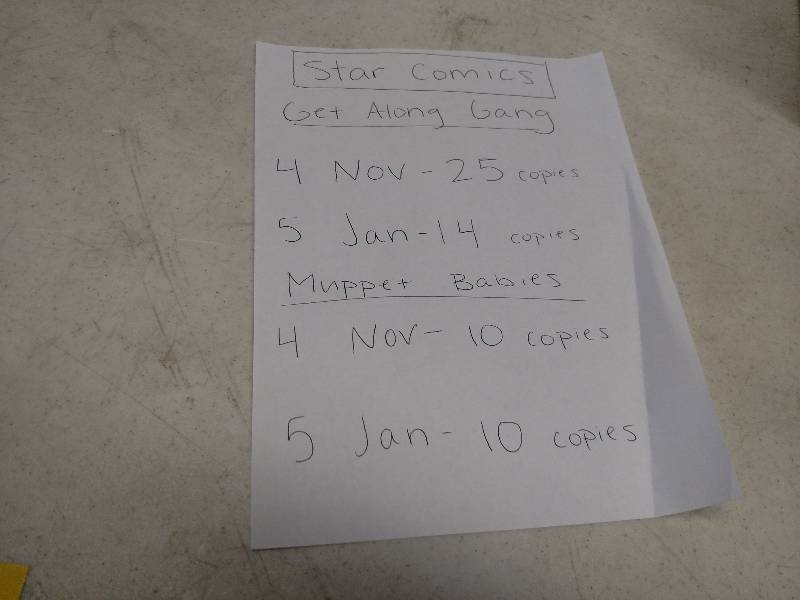 Star Comics
Get Along Gang
4 Nov - 25 copies
5 Jan - 14 copies
Muppet Babies
4 Nov - 10 copies
5 Jan - 10 copies